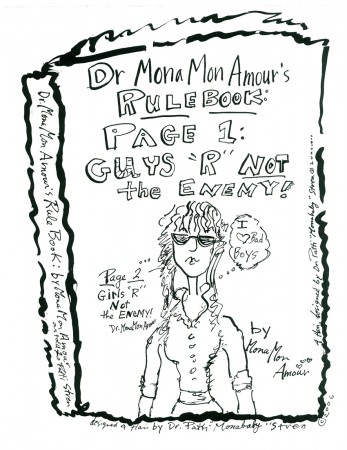 Dr Mona Mon Amour's
RULEBOOK:
PAGE 1:
GUYS "R" NOT
the ENEMY!
I ♡ Bad
Boys
Page 2
Girls "R"
Not
the ENEMY!
Dr. Mona Mon Amour
by
Mona Mon
Amour
Dr. Mona Mon Amour's Rule Book: by Mona Mon Amour
designed by Dr. Patti "Monababy" Stren
© 2006
designed by Dr. Patti "Monababy" Stren